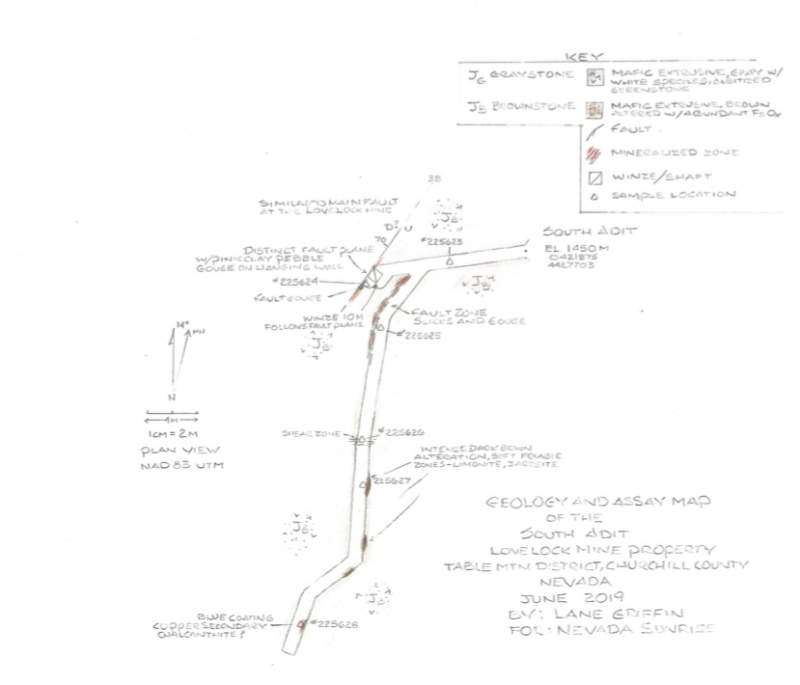 KEY
JG GRAYSTONE
MAFIC EXTRUSIVE, GRAY W/
WHITE SPECKLES, ALBITIZED
GREENSTONE
JB BROWNSTONE
MAFIC EXTRUSIVE, BROWN
ALTERED W/ABUNDANT FEOX
FAULT
MINERALIZED ZONE
WINZE/SHAFT
SAMPLE LOCATION
38
SIMILAR TO MAIN FAULT
AT THE LOVELOCK MINE
D? U
70
JB
#225623
SOUTH ADIT
EL. 1450 M
0421875
4427703
DISTINCT FAULT PLANE
W/PINK CLAY PEBBLE
GOUGE ON HANGING WALL
#225624
FAULT GOUGE
JB
WINZE 10M
FOLLOWS FAULT PLANE
FAULT ZONE
SLICKS AND GOUGE
#225625
JB
14°
MN
N
4M
1CM = 2M
PLAN VIEW
NAD 83 UTM
SHEAR ZONE
#225626
INTENSE DARK BROWN
ALTERATION, SOFT FRIABLE
ZONES - LIMONITE, JAROSITE
#225627
JB
JB
BLUE COATING
COPPER SECONDARY
CHALCANTHITE?
#225628
GEOLOGY AND ASSAY MAP
OF THE
SOUTH ADIT
LOVELOCK MINE PROPERTY
TABLE MTN DISTRICT, CHURCHILL COUNTY
NEVADA
JUNE 2019
BY: LANE GRIFFIN
FOR: NEVADA SUNRISE